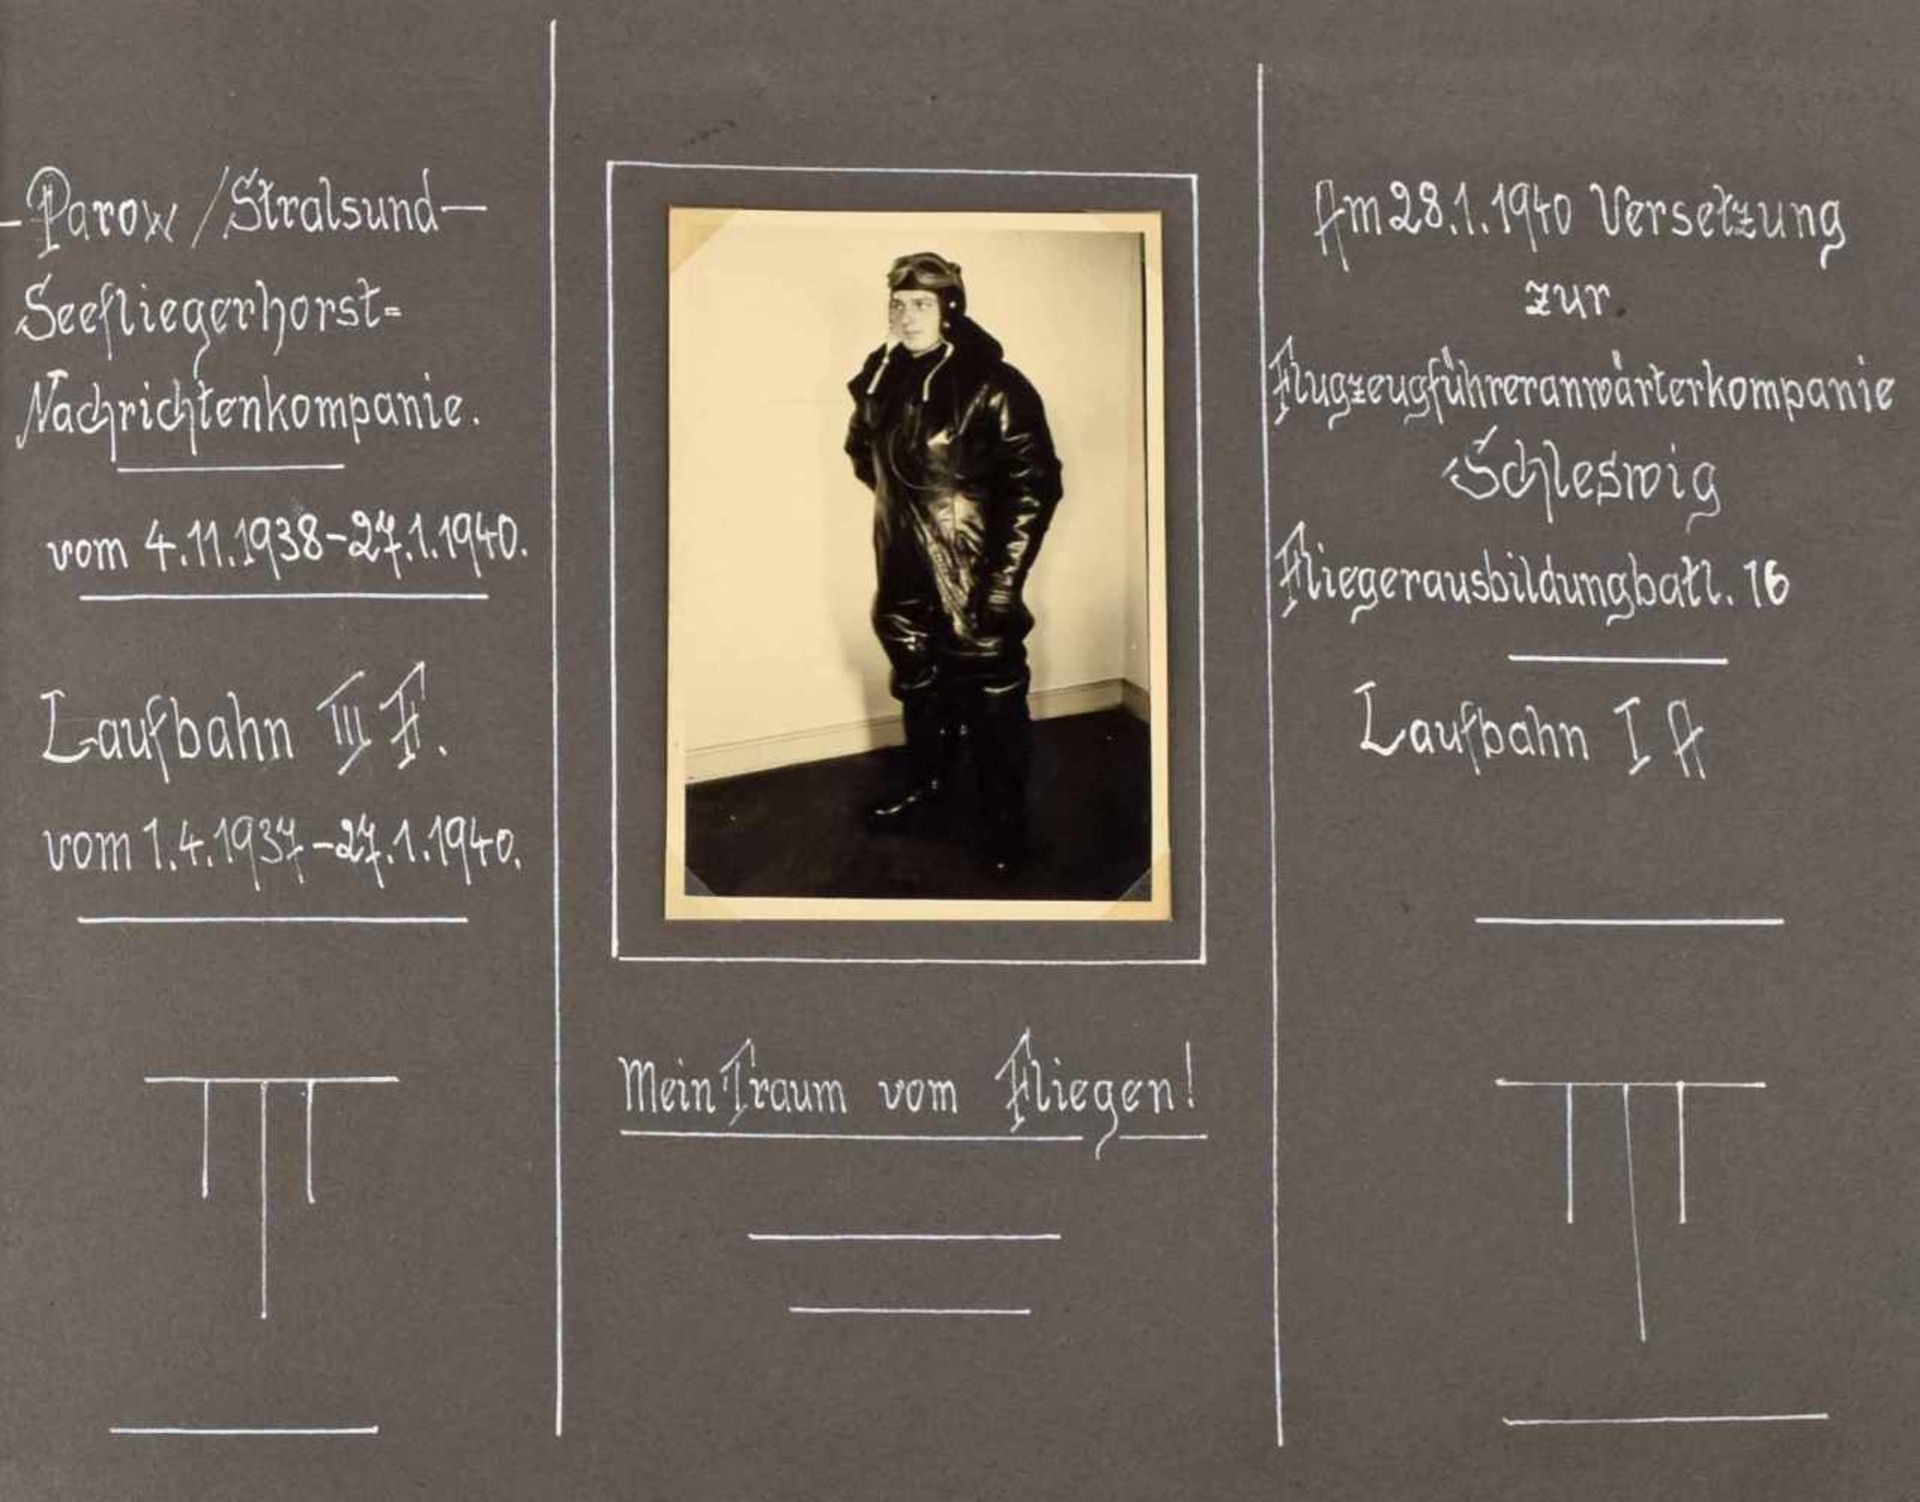 - Parow / Stralsund -
Seefliegerhorst=
Nachrichtenkompanie.
vom 4.11.1938-27.1.1940.
Laufbahn III F.
vom 1.4.1937-27.1.1940.
Mein Traum vom Fliegen!
Am 28.1.1940 Versetzung
zur
Flugzeugführeranwärterkompanie
Schleswig
Fliegerausbildungbatl. 16
Laufbahn I A